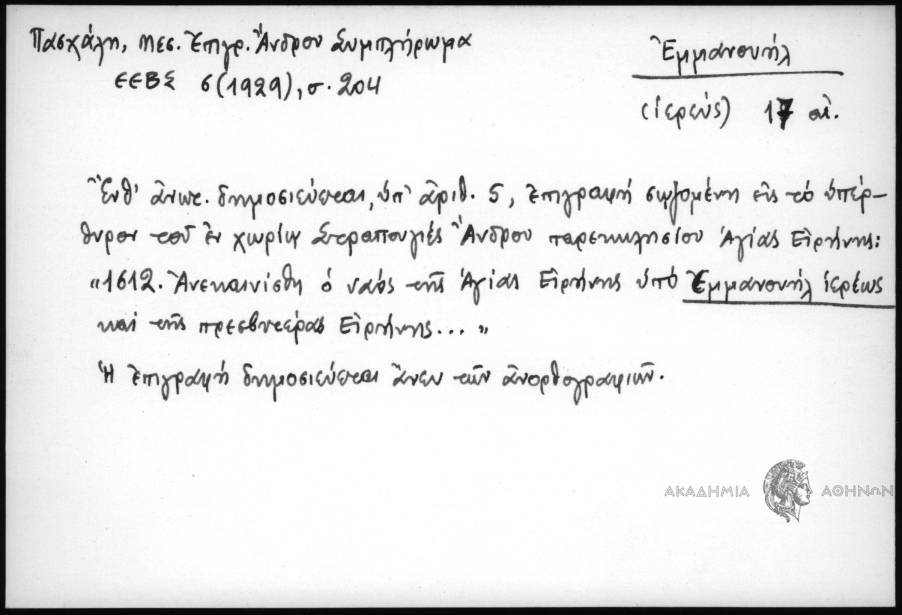 Πασχάλη, Μεσ. Ἐπιγρ. Ἄνδρου Συμπλήρωμα
ΕΕΒΣ 6 (1929), σ. 204
Ἐμμανουήλ
(ἱερεύς) 17 αἰ.
Ἔνθ' ἄνωτ. δημοσιεύεται, ὑπ' ἀριθ. 5, ἐπιγραφή σῳζομένη εἰς τό ὑπέρ-
θυρον τοῦ ἐν χωρίῳ Στραπουργιές Ἄνδρου παρεκκλησίου Ἁγίας Εἰρήνης:
"1612. Ἀνεκαινίσθη ὁ ναός τῆς Ἁγίας Εἰρήνης ὑπό Ἐμμανουήλ ἱερέως
καί τῆς πρεσβυτέρας Εἰρήνης... "
Ἡ ἐπιγραφή δημοσιεύεται ἄνευ τῶν ἀνορθογραφιῶν.
ΑΚΑΔΗΜΙΑ ΑΘΗΝΩΝ